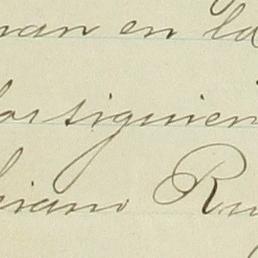 nan en la
los siguien
biano Ru